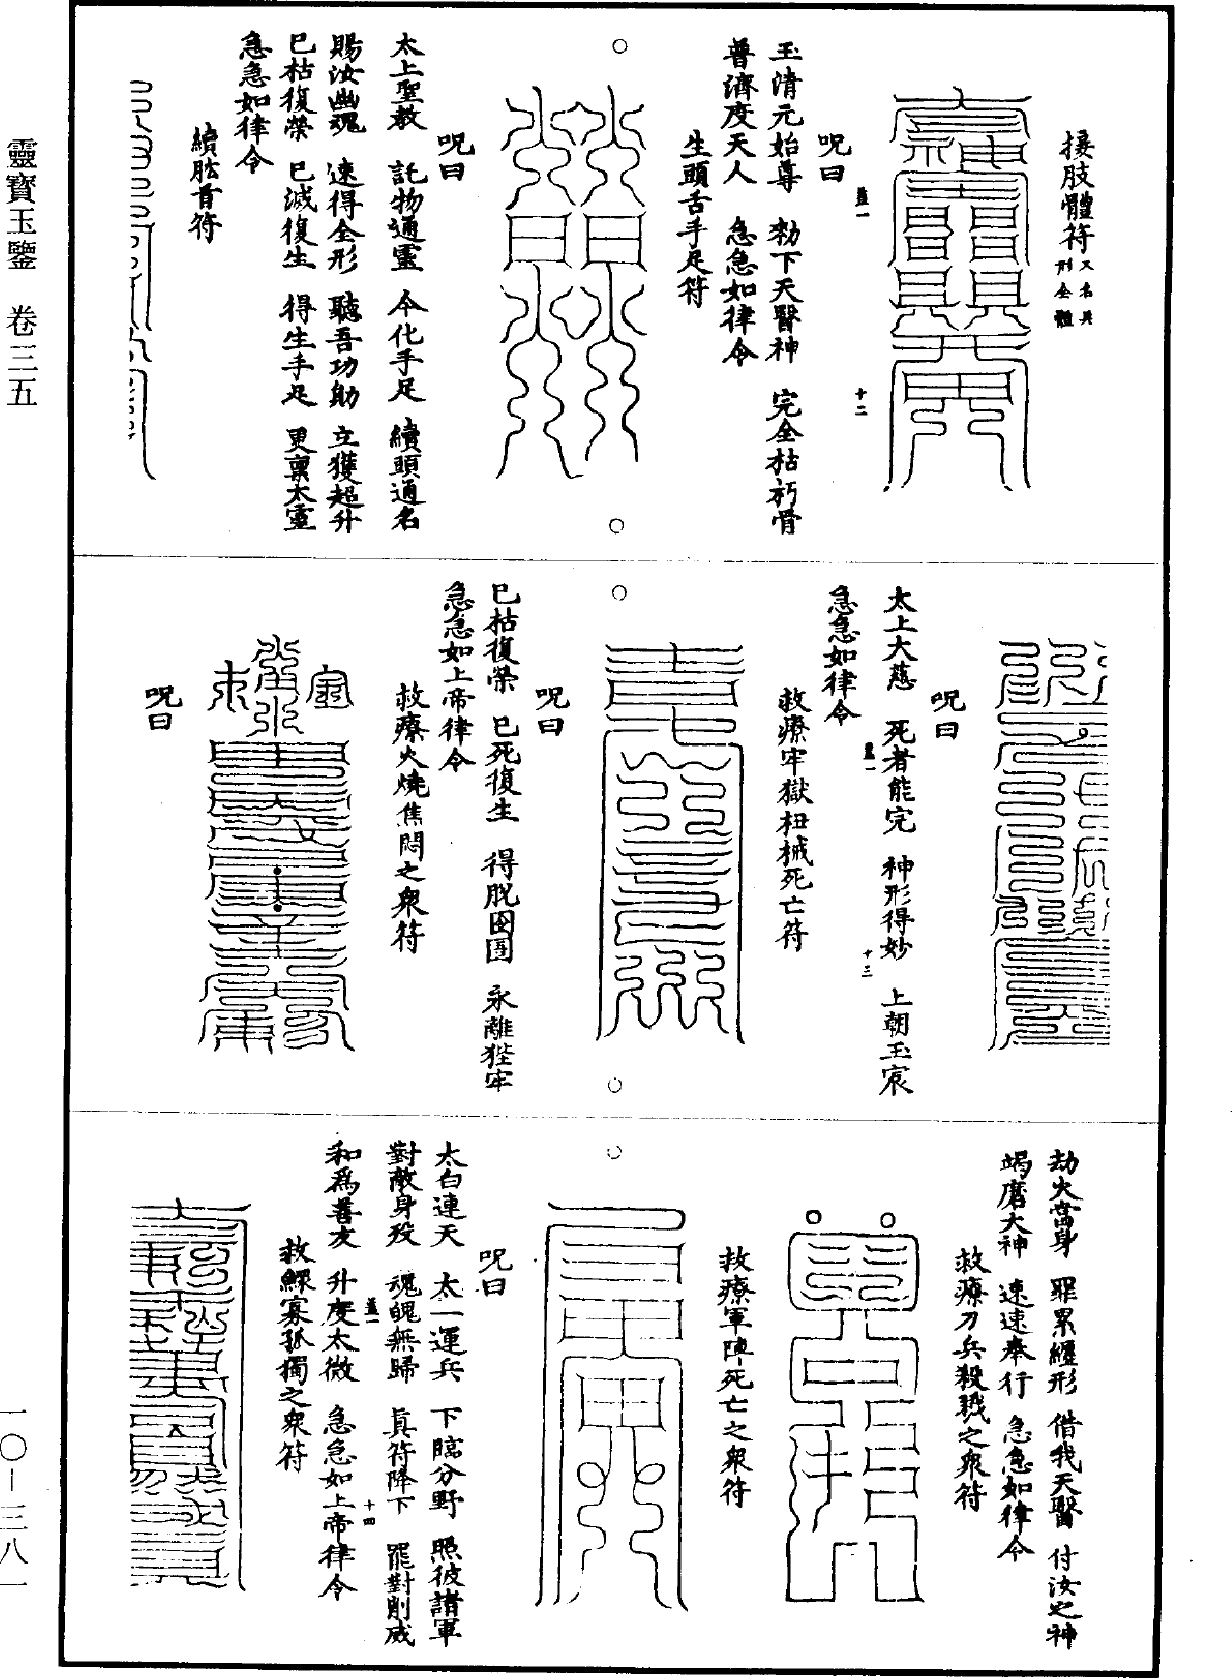 靈寶玉鑒　卷三五
接肢體符又名具形全體
呪曰
玉清元始尊　勑下天醫神　完全枯朽骨
普濟度天人　急急如律令
生頭舌手足符
呪曰
太上聖教　託物通靈　今化手足　續頭通名
賜汝幽魂　速得全形　聽吾功助　立獲超升
已枯復榮　已滅復生　得生手足　更稟太靈
急急如律令
續肱首符
呪曰
太上大慈　死者能完　神形得妙　上朝玉宸
急急如律令
救療牢獄杻械死亡符
呪曰
已枯復榮　已死復生　得脫囹圄　永離狴牢
急急如上帝律令
救療火燒焦悶之衆符
呪曰
劫火當身　罪累纏形　借我天醫　付汝之神
竭磨大神　速速奉行　急急如律令
救療刀兵殺戮之衆符
救療軍陣死亡之衆符
呪曰
太白連天　太一運兵　下臨分野　照彼諸軍
對敵身歿　魂魄無歸　真符降下　罷對削威
和爲善友　升度太微　急急如上帝律令
救鰥寡孤獨之衆符
一〇－三八一